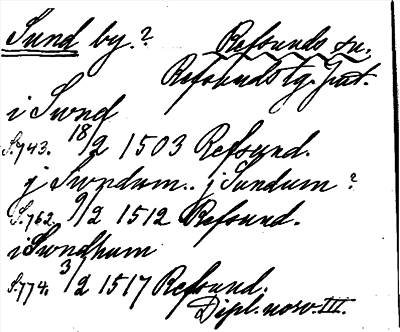 Sund by.?
Refsunds sn.
Refsunds tg. Jmt.
i Swnd
S. 743. 18/2 1503 Refsund.
j Swndum.. j Sundum?
S. 762. 9/2 1512 Refsund.
i Swndhum
S. 774. 3/2 1517 Refsund.
Dipl. norv. III.